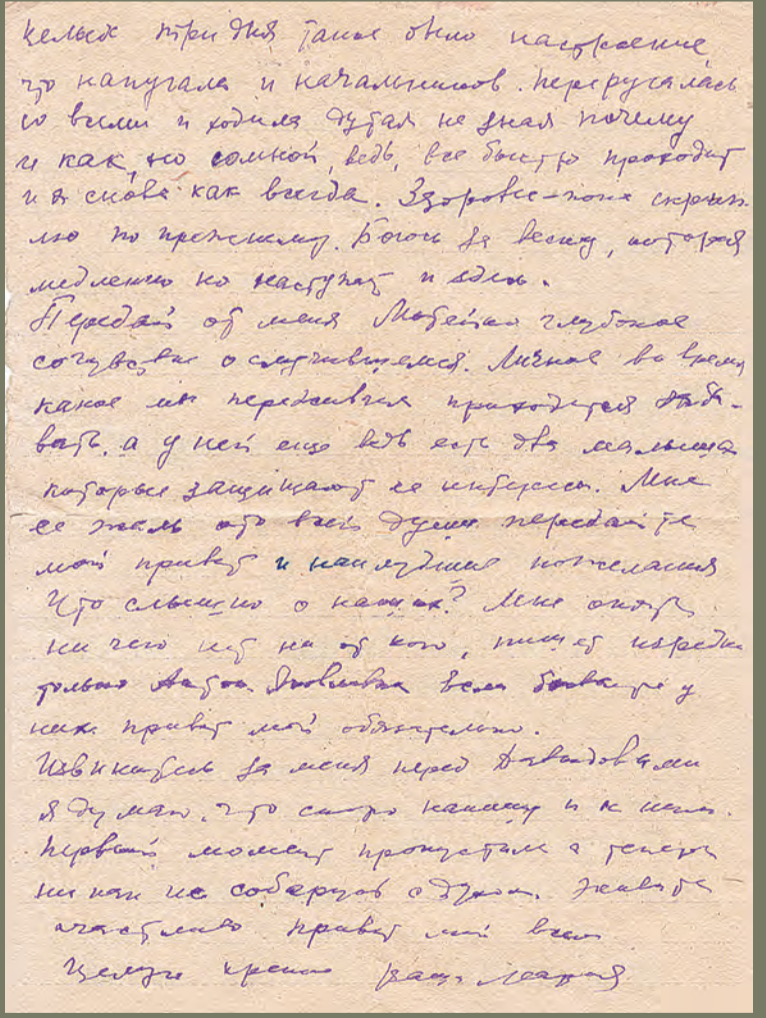 целых три дня такое было настроение,
что напугала и начальников. Переругалась
со всеми и ходила дутая не зная почему
и как, но сомной, ведь, все быстро проходит
и я снова как всегда. Здоровье – пока скрип-
лю по прежнему. Боюсь за весну, которая
медленно но наступает и здесь.
Передай от меня глубокое
сочувствие о случившемся. Личное во время
какое мы переживаем приходится забы-
вать, а у ней еще ведь есть два малыша
которые защищают ее интересы. Мне
ее жаль ото всей души передайте
мой привет и наилучшие пожелания
Что слышно о наших? Мне опять
ни чего нет ни от кого, пишет изредка
только Яковлевна если бываете у
них привет мой обязательно.
Извинитесь за меня перед Давыдовыми
я думаю, что скоро напишу и к ним.
Первый момент пропустила а теперь
ни как не соберусь с духом. Живите
счастливо привет мой всем
Целую крепко ваша Мария